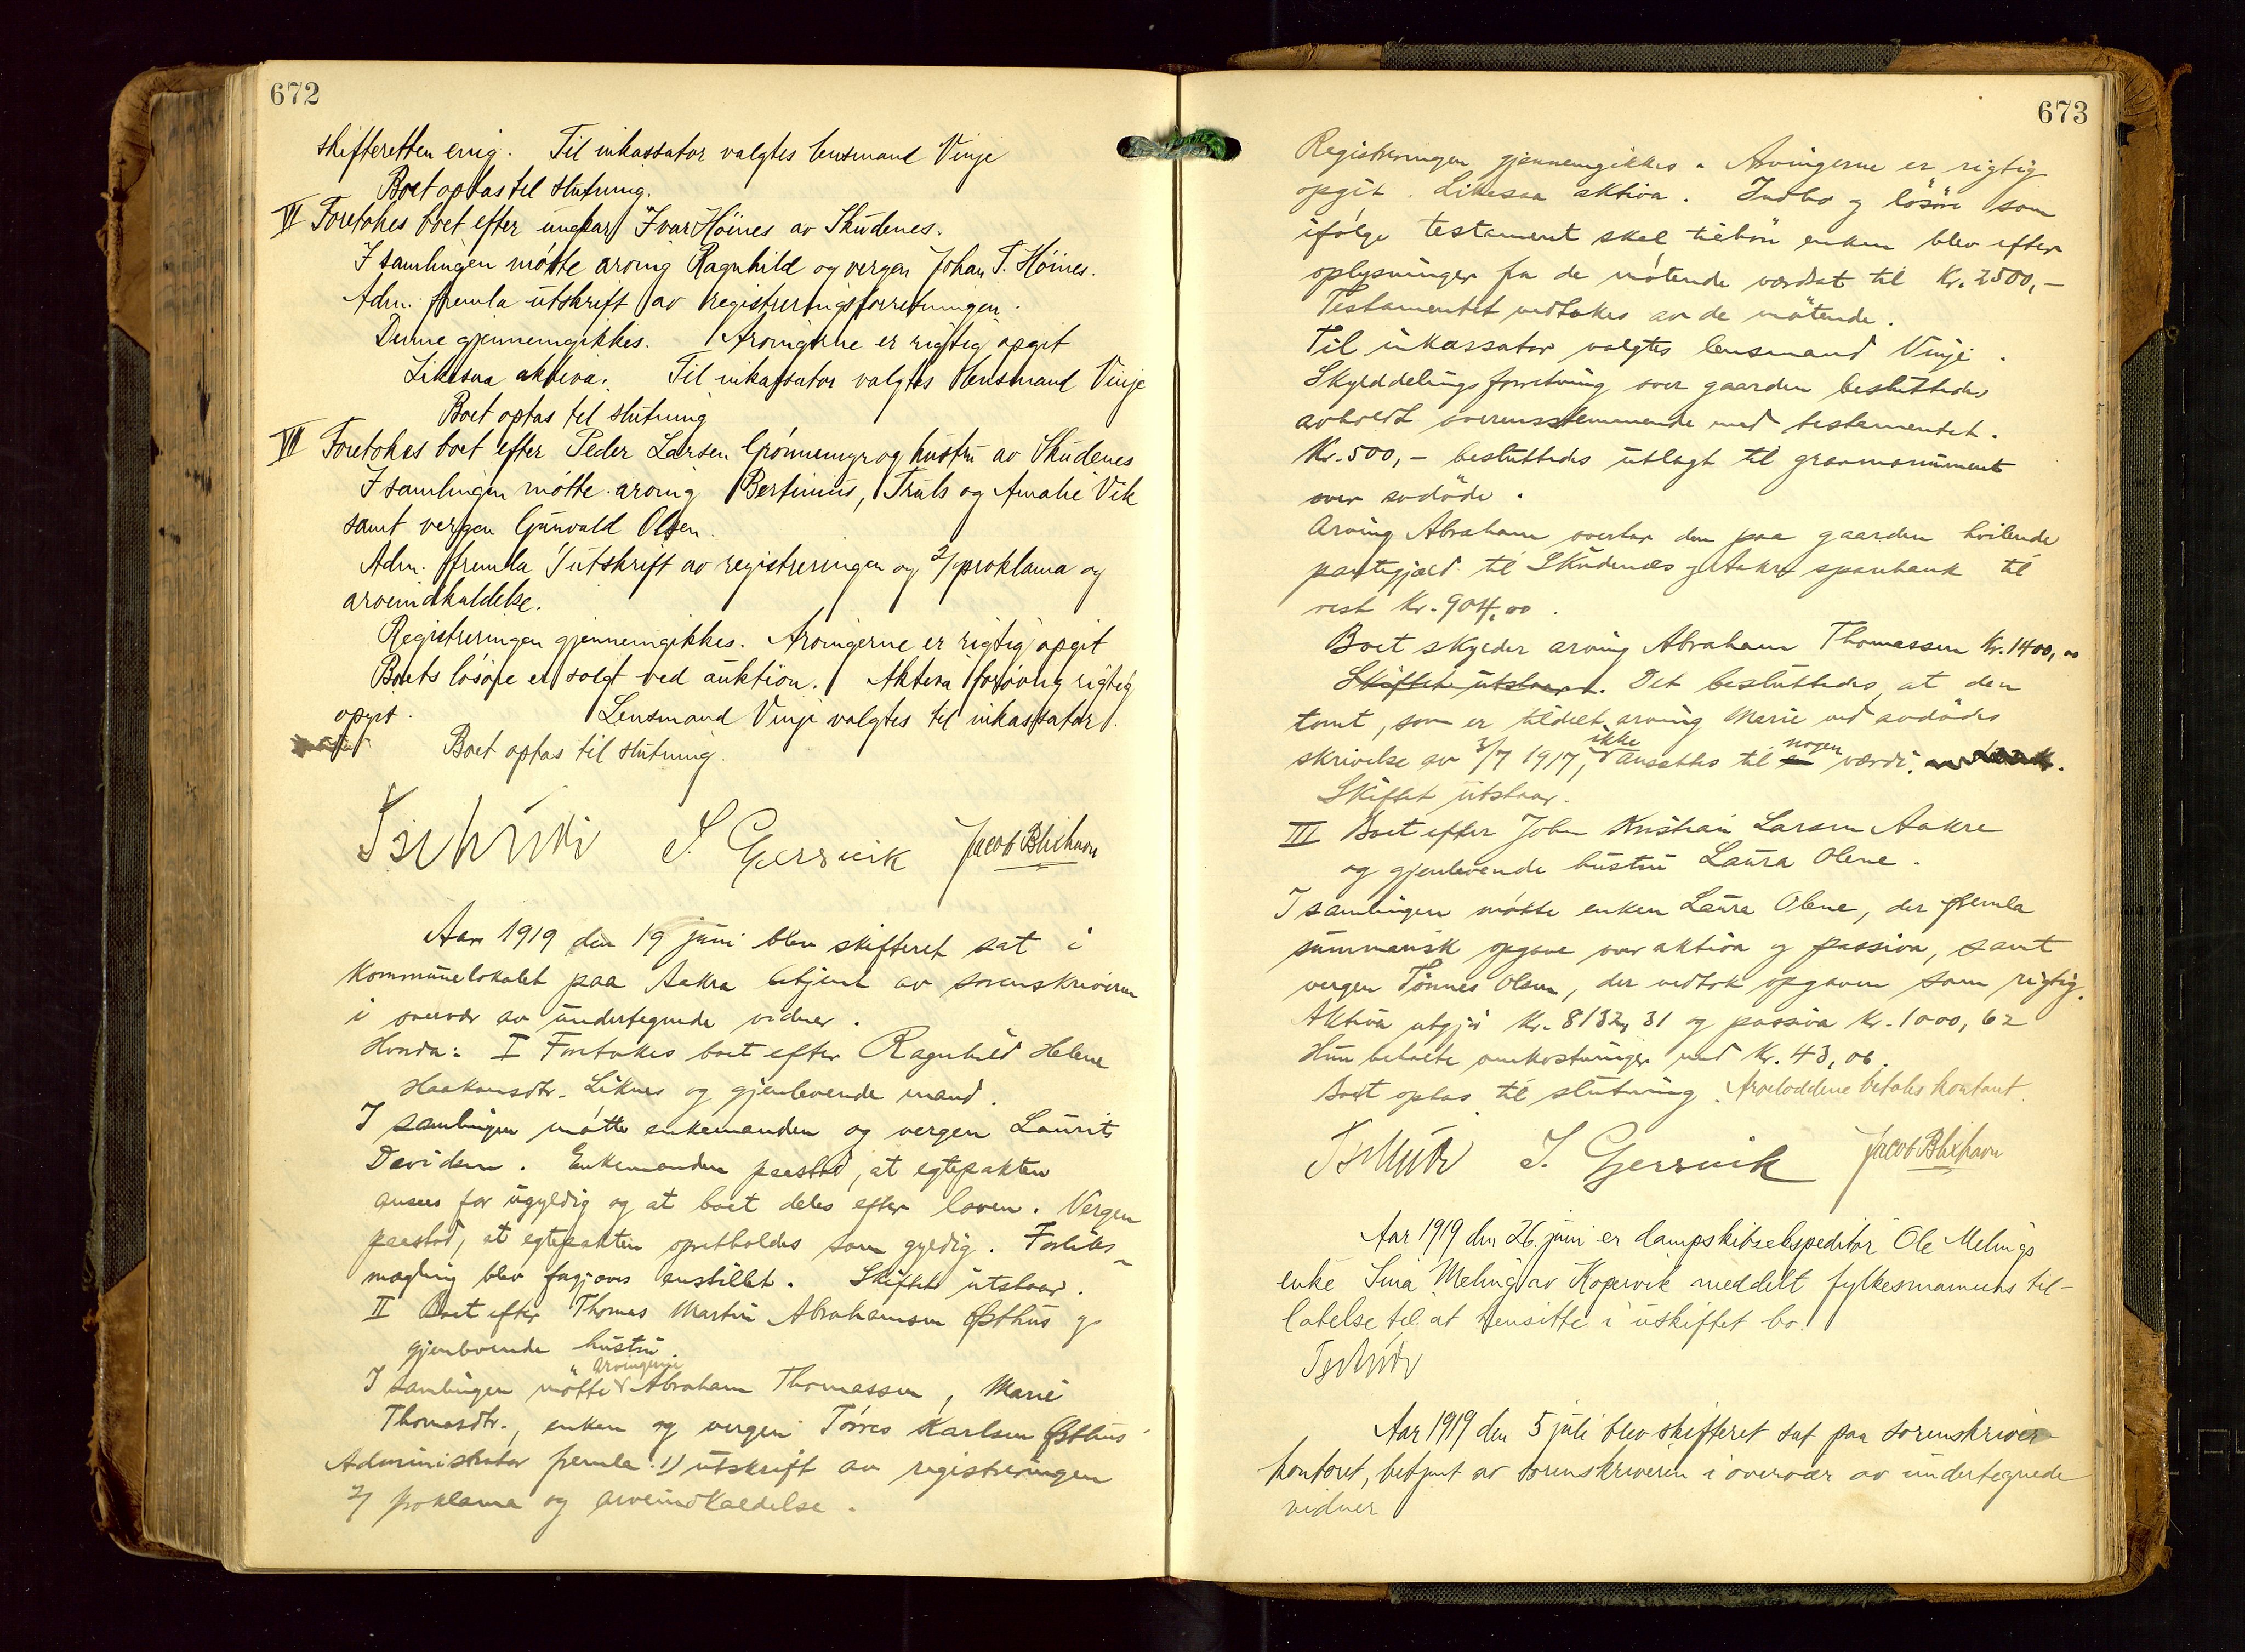 672
skifteretten enig. Til inkassator valgtes lensmand Vinje
Boet optas til slutning.
VI Foretokes boet efter ungkar Ivar Höines av Skudenes.
I samlingen mötte arving Ragnhild og vergen Johan T. Höines.
Adm. fremla utskrift av registreringsforretningen.
Denne gjennemgikkes. Arvingerne er rigtig opgit
Likesaa aktiva. Til inkassator valgtes lensmand Vinje
Boet optas til slutning
VII Foretokes boet efter Peder Larsen Grönnemyr og hustru av Skudenes
I samlingen mötte arving Bertinius, Truls og Amalie Vik
samt vergen Gunvald Olsen.
Adm. fremla 1/ utskrift av registreringen og 2/ proklama og
arveindkaldelse.
Registreringen gjennemgikkes. Arvingerne er rigtig opgit
Boets lösöre er solgt ved auktion. Aktiva forövrig rigtig
opgit. Lensmand Vinje valgtes til inkassator.
Boet optas til slutning.
Tschudi S. Gjersvik Jacob Blixhavn
Aar 1919 den 19 juni blev skifteret sat i
kommunelokalet paa Aakra betjent av sorenskriveren
i overvær av undertegnede vidner.
Hvorda: I Foretokes boet efter Ragnhild Helene
Haakonsdtr. Liknes og gjenlevende mand.
I samlingen mötte enkemanden og vergen Laurits
Davidsen. Enkemanden paastod, at egtepakten
ansees for ugyldig og at boet deles efter loven. Vergen
paastod, at egtepakten opretholdes som gyldig. Forliks-
mægling blev forgjæves anstillet. Skiftet utstaar.
II Boet efter Thomas Martin Abrahamsen Østhus og
gjenlevende hustru.
arvingerne
I samlingen mötte Abraham Thomassen, Marie
Thomasdtr., enken og vergen Torres Karlsen Østhus
Administrator fremla: 1) utskrift av registreringen
2/ proklama og arveindkaldelse.
673
Registreringen gjennemgikkes. Arvingerne er rigtig
opgit. Likesaa aktiva. Indbo og lösöre som
ifölge testament skal tilhöre enken blev efter
oplysninger fra de mötende værdsat til Kr. 2500,-
Testamentet vedtokes av de mötende.
Til inkassator valgtes lensmand Vinje.
Skylddelingsforretning over gaarden besluttedes
avholdt overensstemmende med testamentet.
Kr. 500,- besluttedes utlagt til gravmonument
over avdöde.
Arving Abraham overtar den paa gaarden hvilende
pantegjæld til Skudenes og Aakra sparebank til
rest Kr. 904,00.
Boet skylder arving Abraham Thomassen Kr. 1400,00
Skiftet utstaar. Det besluttedes, at den
tomt, som er tildelt arving Marie ved avdödes
skrivelse av 3/7 1917, ikke ansættes til nogen værdi.
Skiftet utstaar.
III Boet efter John Kristian Larsen Aakre
og gjenlevende hustru Laura Olene.
I samlingen mötte enken Laura Olene, der fremla
summarisk opgave over aktiva og passiva, samt
vergen Tönnes Olsen, der vedtok opgaven som rigtig.
Aktiva utgjör Kr. 8132,31 og passiva Kr. 1000,62
Hun betalte omkostninger med Kr. 43,06.
Boet optas til slutning. Arveloddene betales kontant.
Tschudi S. Gjersvik Jacob Blixhavn
Aar 1919 den 26. juni er dampskibsekspeditör Ole Melings
enke Sina Meling av Kopervik meddelt fylkesmannens til-
latelse til at hensitte i uskiftet bo.
Tschudi
Aar 1919 den 5 juli blev skifteret sat paa sorenskriver
kontoret, betjent av sorenskriveren i overvær av undertegnede
vidner